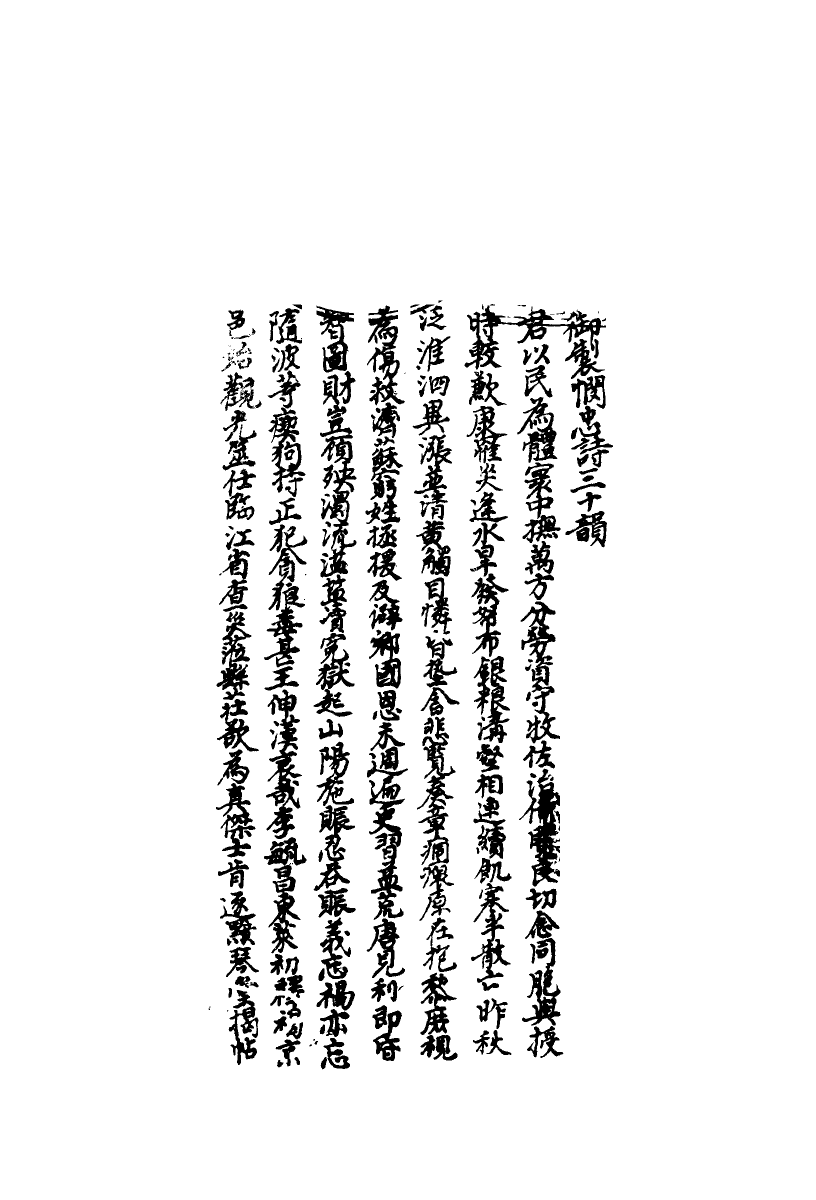 御製憫忠詩三十韻
君以民為體寰中撫萬方分勞資守牧佐治保民切念同胞與授
時較歉康罹災逢水旱發帑布銀粮溝壑相連續飢寒半散亡昨秋
泛淮泗異漲並清黄觸目憐昏墊含悲覧奏章痌瘝原在抱黎庻視
為傷救濟蘇窮姓拯援及僻鄉國恩未週遍吏習益荒唐見利即昏
智圖財豈顧殃濁流溢盐瀆冤獄起山陽施賑忍吞賑義忘禍亦忘
隨波等瘈狗持正犯貪狼毒甚王伸漢哀哉李毓昌東萊初釋褐京
邑始觀光筮仕臨江省查災蒞縣莊欲為真傑士肯逐黷琴堂揭帖